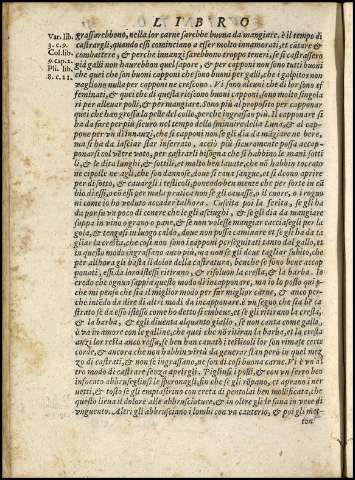 LIBRO
Var. lib. 3. c. 9.
Col. lib. 9. cap. 2.
Pli. lib. 8. c. 21.
grassarebbono, nella lor carne sarebbe buona da mangiare. è il tempo di
castrargli, quando essi cominciano a esser molto innamorati, et cãtare &
combattere, & perche innanzi sarebbono troppo teneri, se si castrassero
già galli non haurebbon quel sapore, & per capponi non sono tutti buoni
che quei che son buoni capponi che sono buoni per galli, che i golpitos non
vagliono nulle per capponi ne crescono. Vi sono alcuni che di lor sono ef
feminati, & quei che di questa riescono buoni capponi, sono molto singola
ri per alleuar polli, & per mangiare. Sono più al proposito per capponar
quei che han grossa la pelle del collo, perche ingrassan più. Il capponare si
ha da fare per più sicuro nel tempo della scura della Luna, & al cap
pone per un dì innanzi, che si capponi non se gli dia da mangiare ne bere,
ma si ha da lasciar star inserrato, acciò più sicuramente possa accap
ponarsi col vẽtre voto, per castrarsi bisogna che si habbino le mani sotti
li, & le dita lunghi, & sottili, et molto ben lauate, che nõ habbin toccato
ne cipolle ne agli, che son dannose, doue si caua sangue, et si deono aprire
per di sotto, & cauargli i testicoli, ponendo ben mente che per forte in cã
bio di essi, o con essi per mala pratica non se gli cauasse, o il cuore, o i rogno
ni come io ho veduto accader talhora. Cuscita poi la ferita, se gli ha
da por sù vn poco di cenere che le gli asciughi, & se gli dia da mangiare
suppa in vino o grano o pane, & se non volesse mangiare cacciasegli per la
gola, & tengasi in luogo caldo, doue non possa caminare et se gli ha da ta
gliar la cresta, che così non sono i capponi perseguitati tanto dal gallo, et
in questo modo ingrassano assai più, ma non se gli deue tagliar subito, che
per allhora gli basta il dolore della castratura, benche se sono bene accap
ponati, essi da loro istessi ritirano, & risoluon la cresta, & la barba. Io
credo che ognun sappia questo modo di incapponare, ma io lo posto quì per
che mi penso che sia al miglior modo per far miglior carne, & anco per-
che intẽdo da dire di altri modi da incapponare. è un segno, che sia bẽ ca
strato se da esso istesso come ho detto si embute, et se gli ritirano le cresta,
& la barba, & egli diuenta alquanto giallo, se non canta come gallo,
& ua in amore con le galline, che quei che nõ ritirano la barba, et la cresta
anzi lor resta anco rossa, se ben han cauato i testicoli lor son rimase certe
corde, & ancora che non habbin virtù da generar stan però in quel mez
zo di castrati, & non se ingrassano, ne son di così buona carne. Vi è vn al
tro modo di castrare senza aprirgli. Piglinsi i polli, & con vn ferro ben
infocato abbrusceglinsi le speronagli, sin che se gli rõpano, et aprano i ner
uetti, & tosto se gli empiastrino con creta di pentolai ben mollificata, che
questo lieua il dolore alle abbrusciature, & in oltre gli e sana in vece di
vnguento. Altri gli abbrusciano i lombi con vn cauterio, & poi gli met-
ton